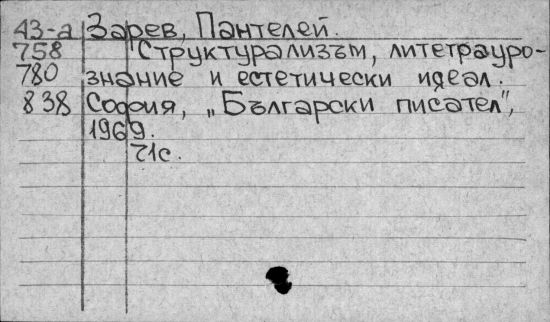 43-а Зарев, Пантелей.
758 Структурализъм, литетрауро-
780 знание и естетически идеал.
838 София, „Български писател",
1969.
71с.